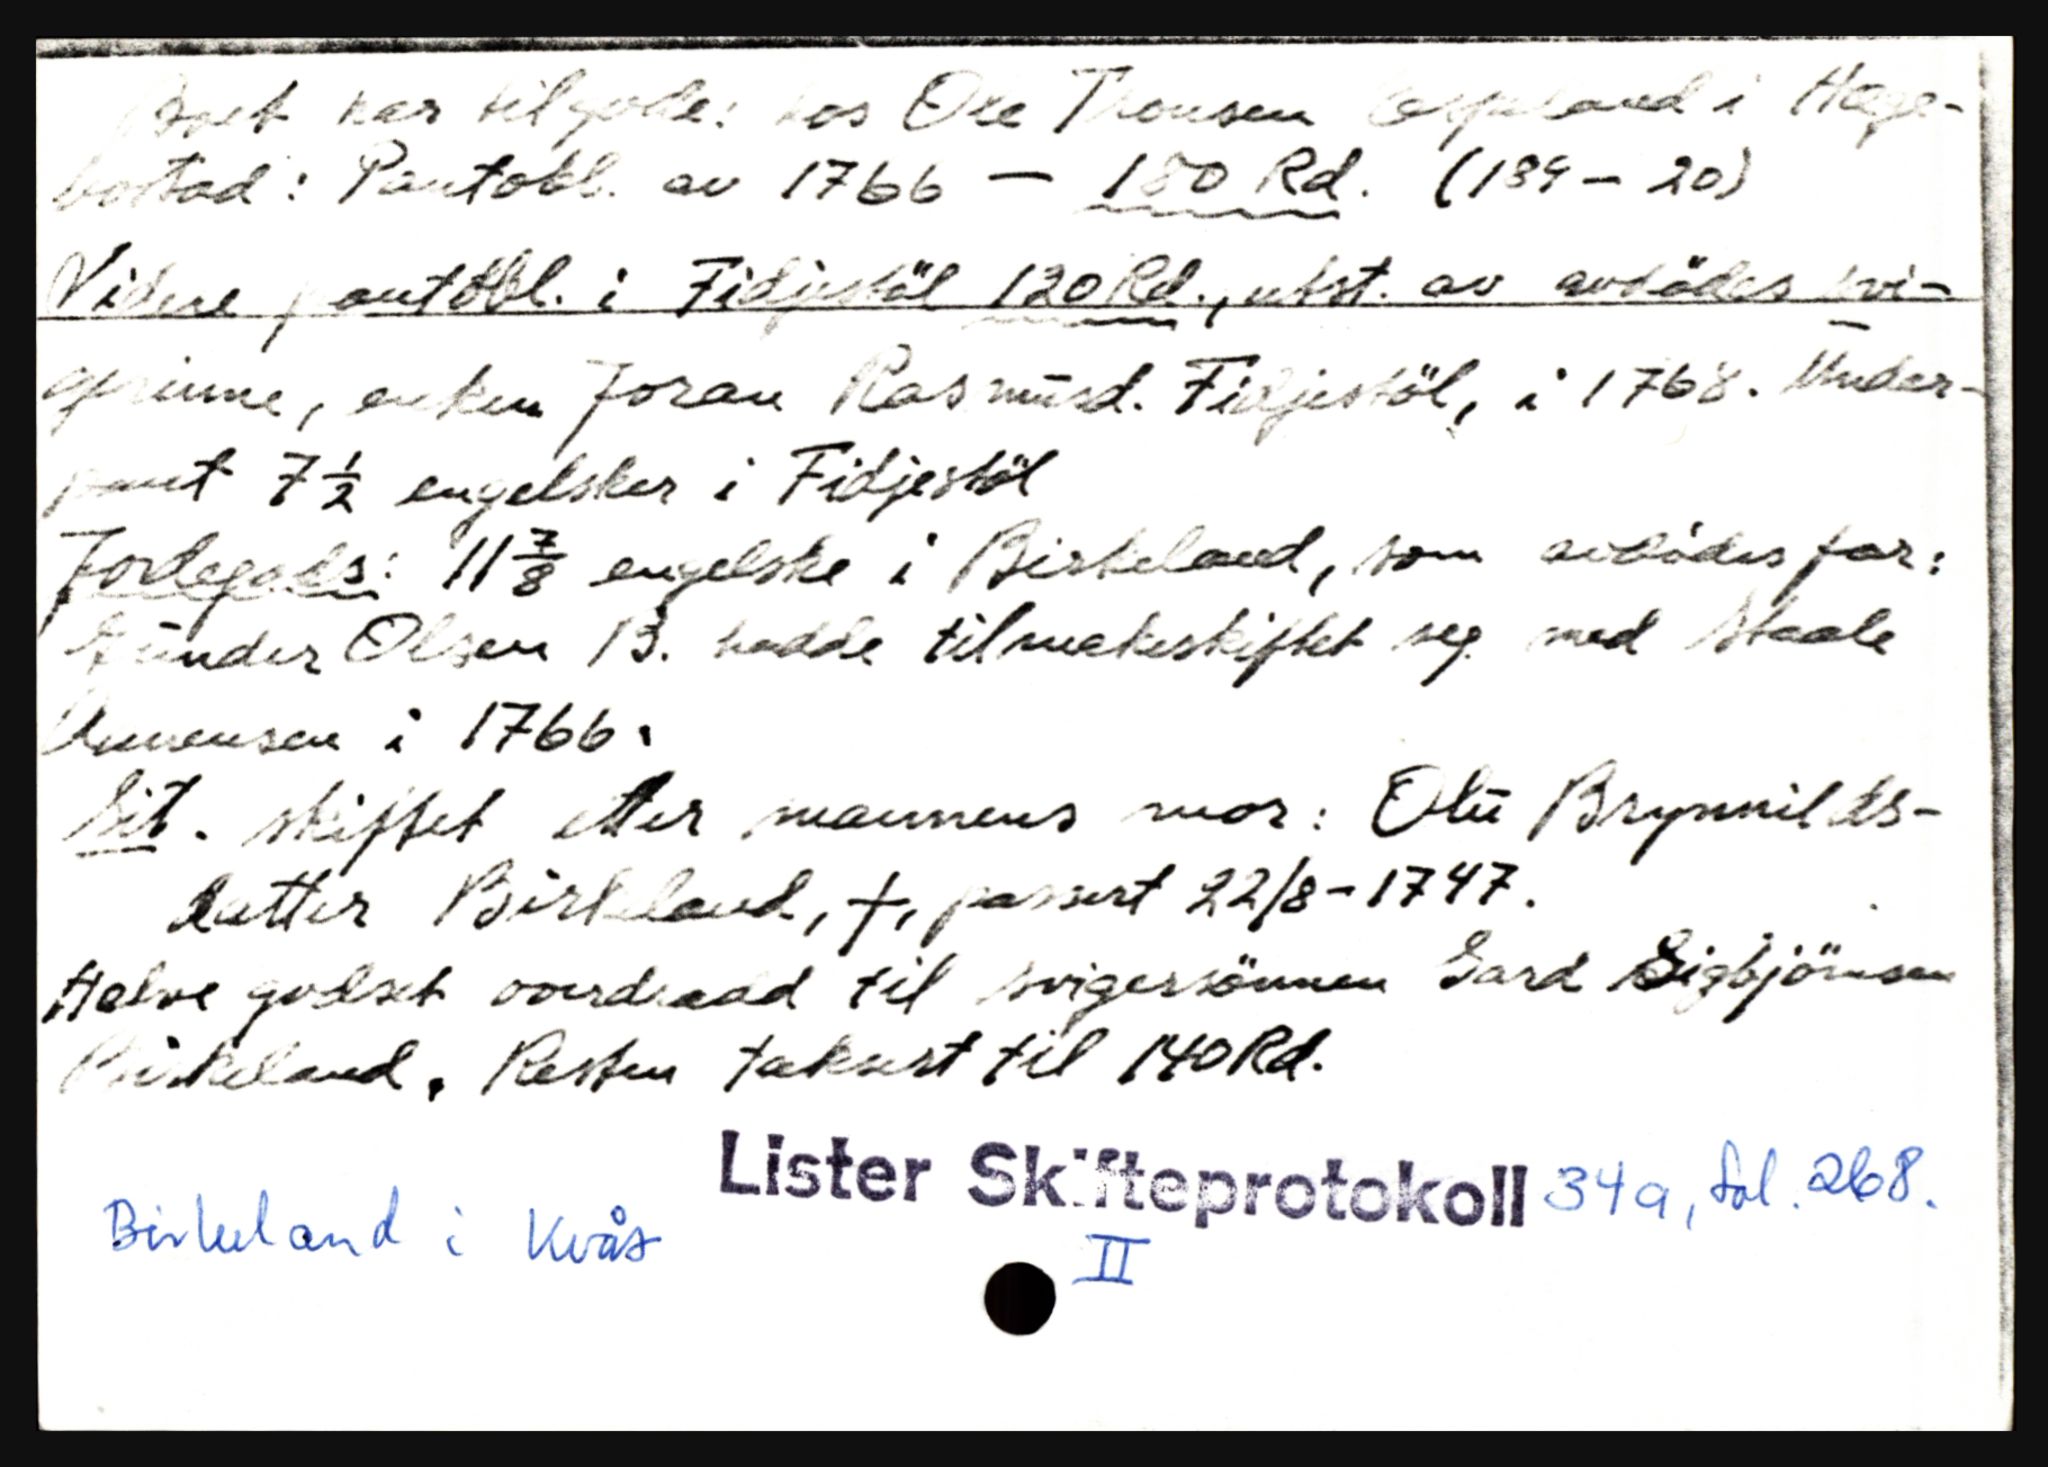 Boet har tilgode: hos Ole Tronsen i Hæge-
bostad: Pantobl. av 1766 — 180 Rd. (189 - 20)
Videre pantobl. i Fidjestöl 120 Rd., utst. av avdödes svi-
gerinne, enken Joran Rasmusd. Fidjestöl, i 1768. Under-
pant 7 1/2 engelsker i Fidjestöl
Jordegods: 11 7/8 engelske i Birkeland, som avdödes far:
Gunder Olsen B. hadde tilmakeskiftet seg med Staale
Aanensen i 1766.
Sit. skiftet etter mannens mor: Olu Brynnilds-
datter Birkeland, †, passert 22/8 - 1747.
Halve godset overdradd til svigersönnen Gard Sigbjörnsen
Birkeland. Resten taksert til 140 Rd.
Lister Skifteprotokoll 34a, fol. 268.
Birkeland i Kvås
II